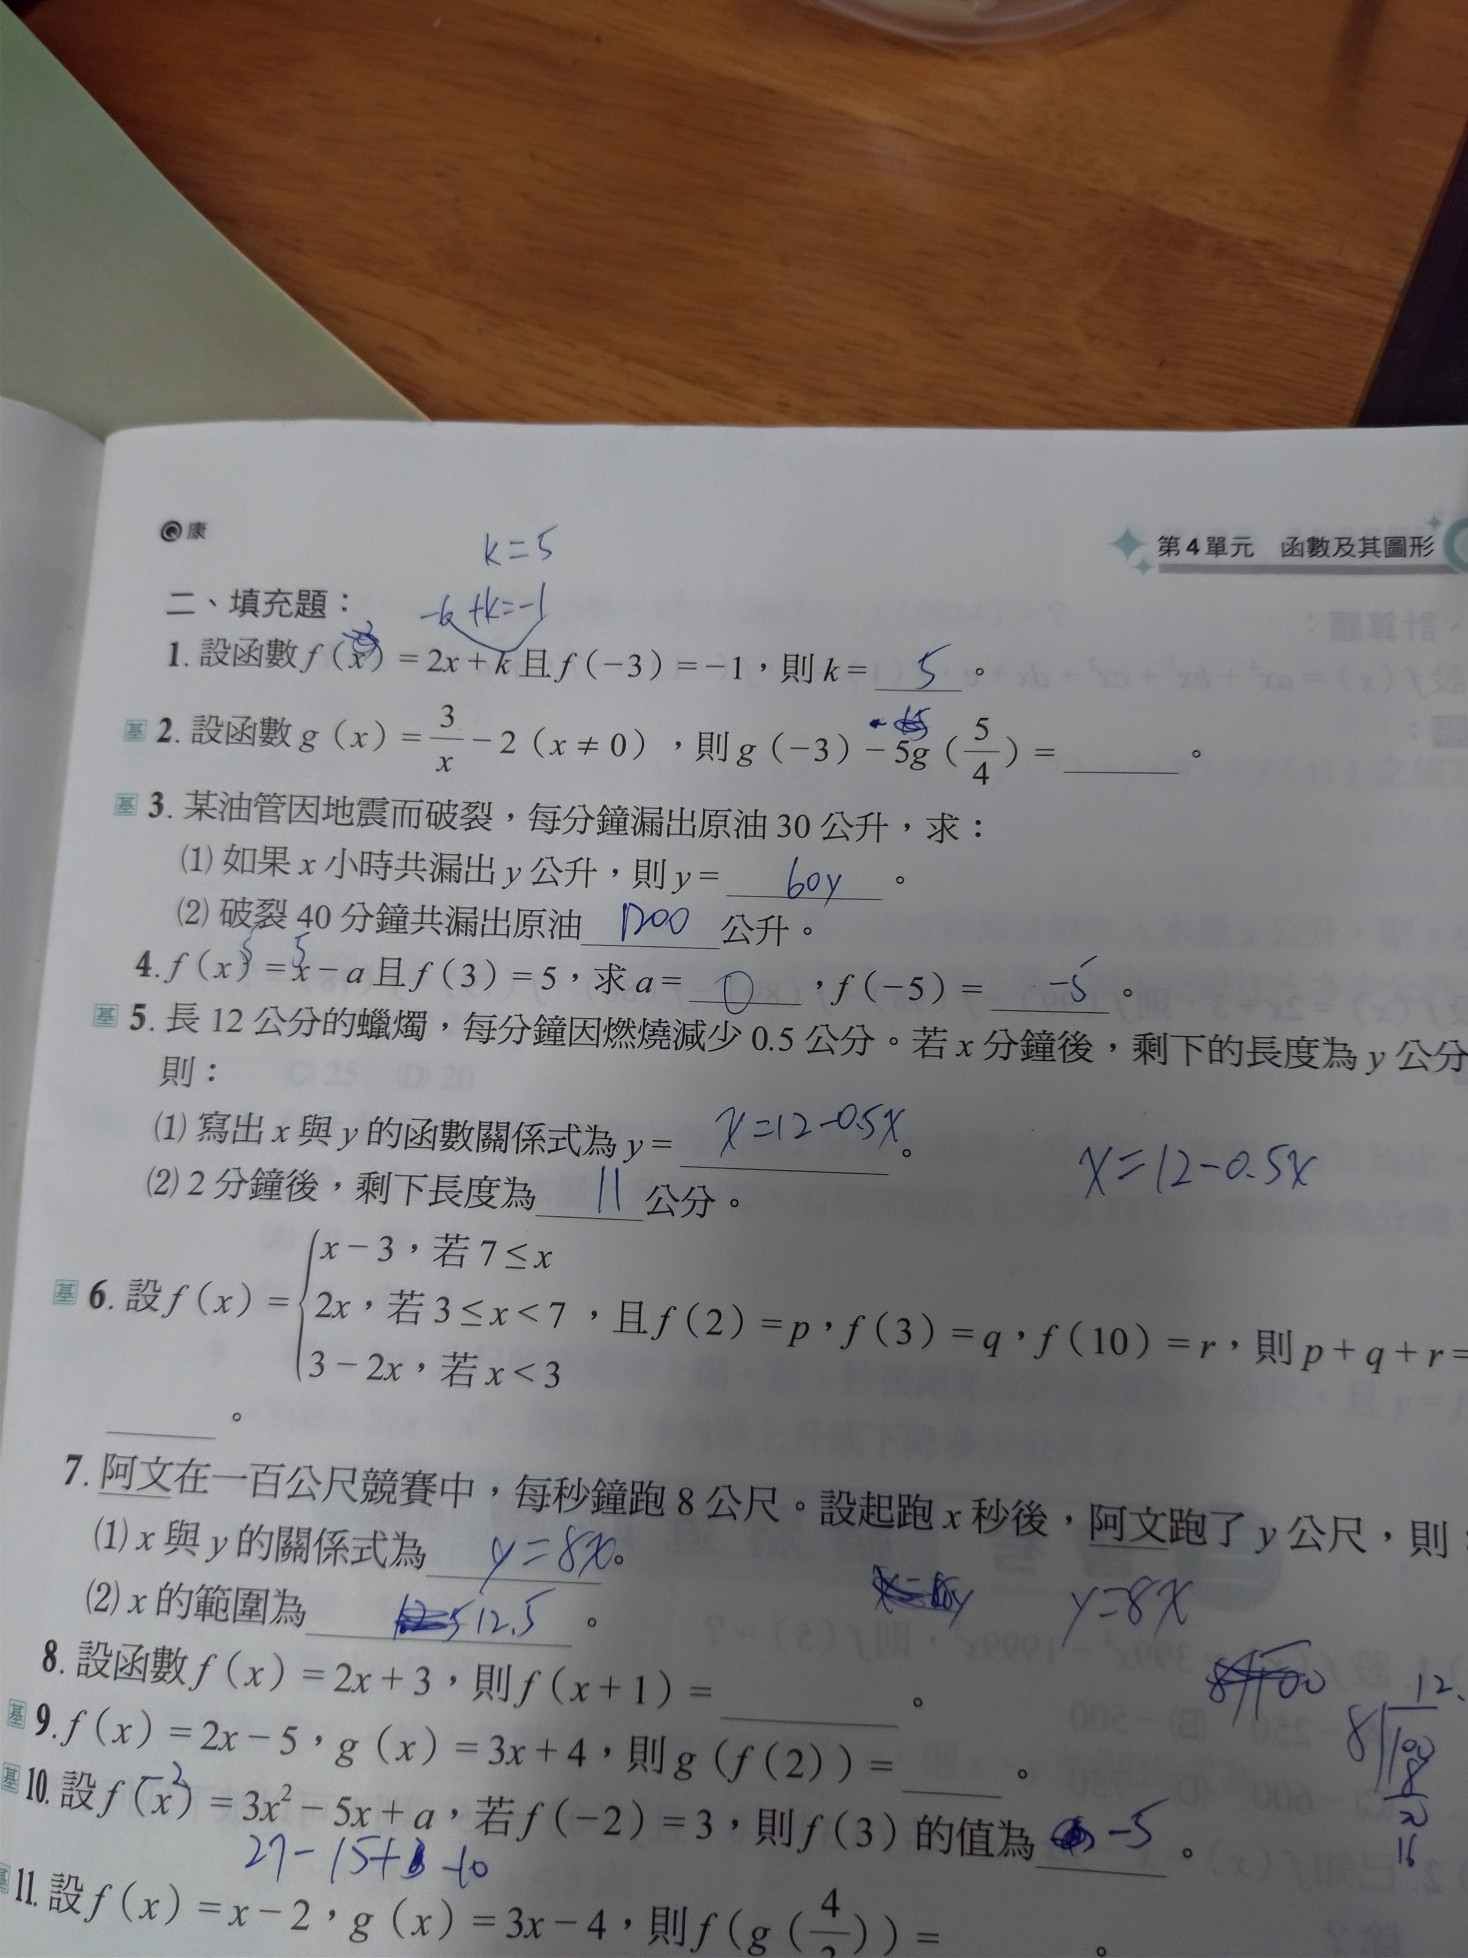 康
第4單元 函數及其圖形
k=5
二、填充題：
-6+k=-1
1. 設函數 f(x)=2x+k 且 f(-3)=-1，則 k= 5 。
基 2. 設函數 g(x)=3/x-2(x≠0)，則 g(-3)-5g(5/4)=____。
基 3. 某油管因地震而破裂，每分鐘漏出原油 30 公升，求：
(1) 如果 x 小時共漏出 y 公升，則 y= 60y 。
(2) 破裂 40 分鐘共漏出原油 1200 公升。
5 5
4. f(x)=x-a 且 f(3)=5，求 a= 0 ，f(-5)= -5 。
基 5. 長 12 公分的蠟燭，每分鐘因燃燒減少 0.5 公分。若 x 分鐘後，剩下的長度為 y 公分
則：
(1) 寫出 x 與 y 的函數關係式為 y= x=12-0.5x 。
x=12-0.5x
(2) 2 分鐘後，剩下長度為 11 公分。
x-3，若 7≤x
基 6. 設 f(x)={2x，若 3≤x<7，且 f(2)=p，f(3)=q，f(10)=r，則 p+q+r=
3-2x，若 x<3
____。
7. 阿文在一百公尺競賽中，每秒鐘跑 8 公尺。設起跑 x 秒後，阿文跑了 y 公尺，則：
(1) x 與 y 的關係式為 y=8x 。
y=8x
(2) x 的範圍為 12.5 。
8. 設函數 f(x)=2x+3，則 f(x+1)=____。
12.
8
16
基 9. f(x)=2x-5，g(x)=3x+4，則 g(f(2))=____。
-2
基 10. 設 f(x)=3x²-5x+a，若 f(-2)=3，則 f(3) 的值為 -5 。
27-15+
基 11. 設 f(x)=x-2，g(x)=3x-4，則 f(g(4/))=____。